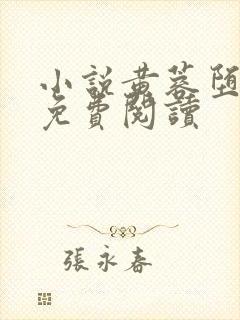 小說黃蓉堕
免費閱讀
張永春